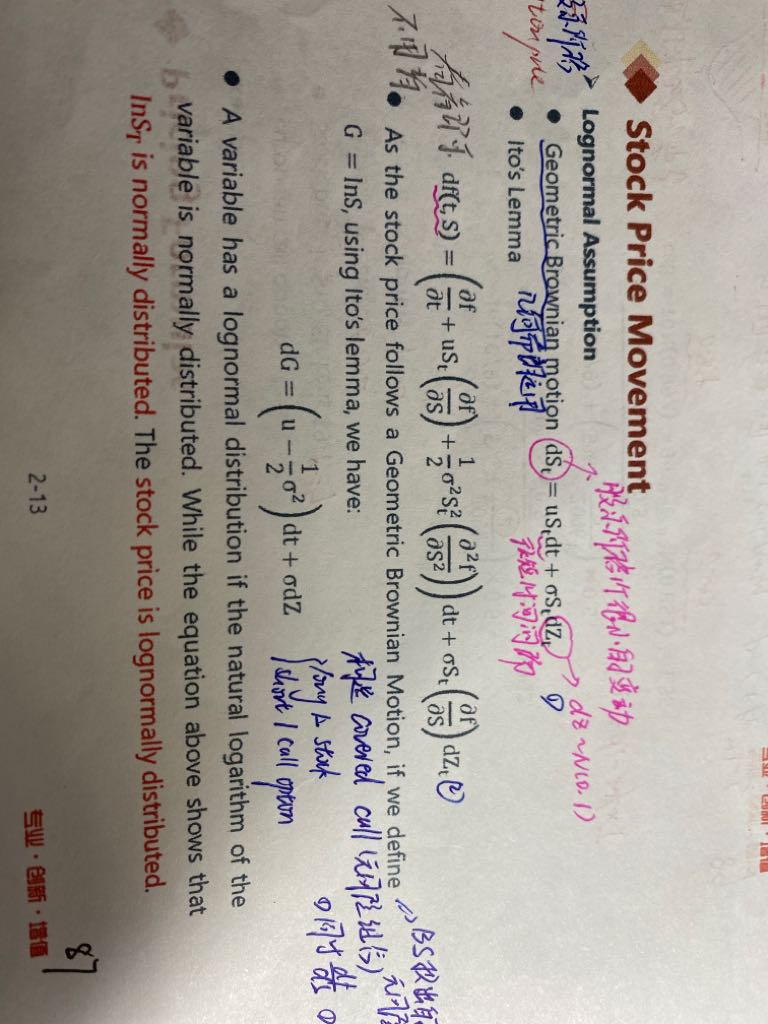 Stock Price Movement
股票价格的很小的变动
股票价格
Lognormal Assumption
Geometric Brownian motion dSₜ = uSₜdt + σSₜdZₜ
dz ~ N(0,1)
①
几何布朗运动
Ito's Lemma
不用背。
df(t,S) = (∂f/∂t + uSₜ(∂f/∂S) + 1/2 σ²Sₜ²(∂²f/∂S²))dt + σSₜ(∂f/∂S)dZₜ ②
As the stock price follows a Geometric Brownian Motion, if we define
G = lnS, using Ito's lemma, we have:
构造 covered call
long Δ stock
short 1 call option
dG = (u − 1/2 σ²)dt + σdZ
A variable has a lognormal distribution if the natural logarithm of the
variable is normally distributed. While the equation above shows that
lnS_T is normally distributed. The stock price is lognormally distributed.
2-13
专业·创新·增值
87